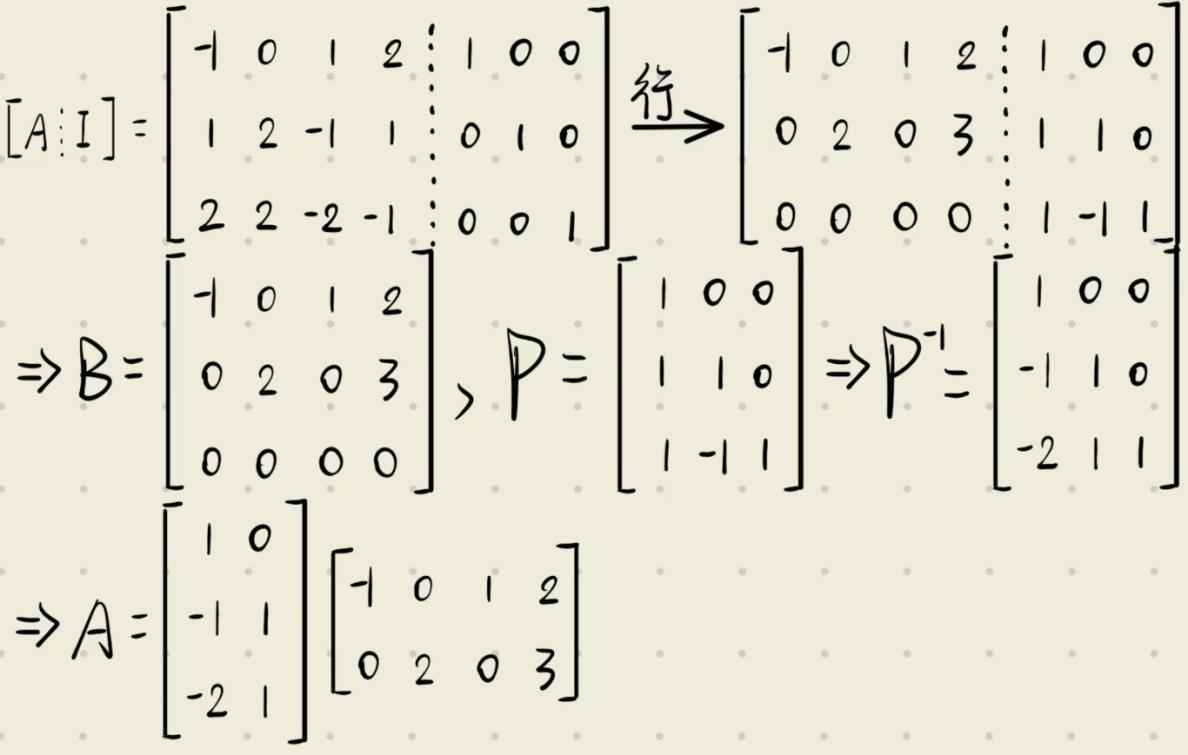 [A⋮I] = [-1 0 1 2 ⋮ 1 0 0; 1 2 -1 1 ⋮ 0 1 0; 2 2 -2 -1 ⋮ 0 0 1] 行→ [-1 0 1 2 ⋮ 1 0 0; 0 2 0 3 ⋮ 1 1 0; 0 0 0 0 ⋮ 1 -1 1]
⇒ B = [-1 0 1 2; 0 2 0 3; 0 0 0 0], P = [1 0 0; 1 1 0; 1 -1 1] ⇒ P⁻¹ = [1 0 0; -1 1 0; -2 1 1]
⇒ A = [1 0; -1 1; -2 1] [-1 0 1 2; 0 2 0 3]